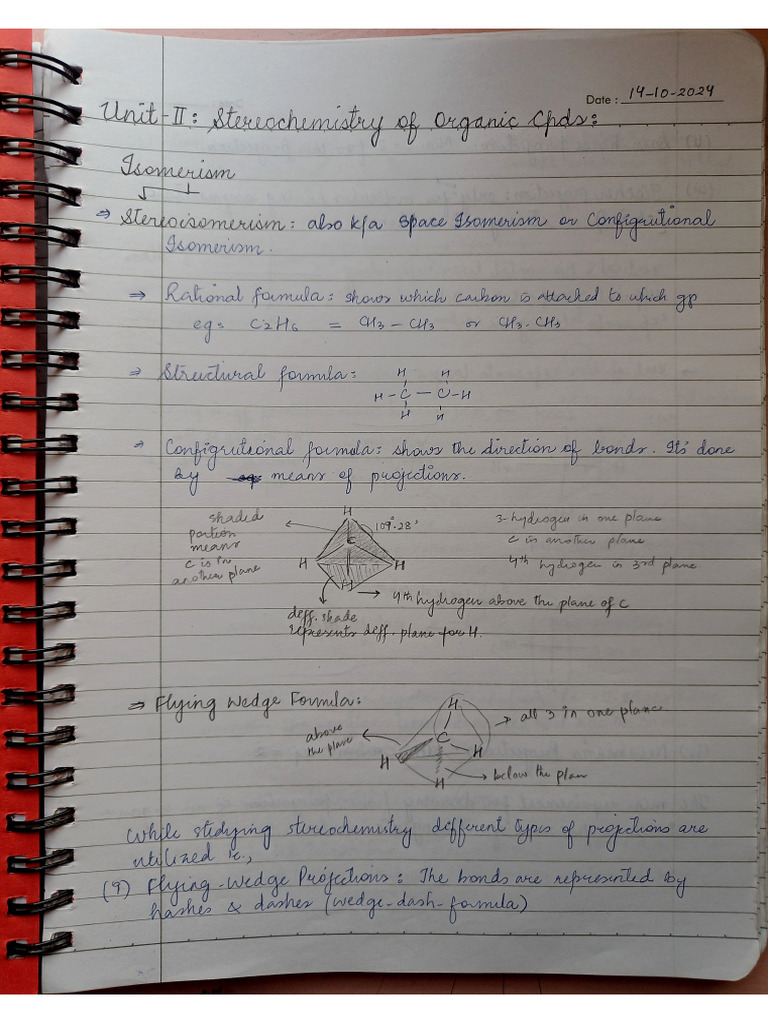 Date : 14-10-2024
Unit-II: Stereochemistry of Organic Cpds:
Isomerism
⇒ Stereoisomerism: also k/a Space Isomerism or Configrutional
Isomerism.
⇒ Rational formula: shows which carbon is attached to which gp
eg: C2H6 = CH3 - CH3 or CH3.CH3
⇒ Structural formula:
H H
H - C - C - H
H H
⇒ Configrutional formula: shows the direction of bonds. Its done
by means of projections.
shaded
portion
means
C is in
another plane
H
109°.28'
C
H H
H
3-hydrogen in one plane
C is another plane
4th hydrogen in 3rd plane
→ 4th hydrogen above the plane of C
deff. shade
represents deff. plane for H.
⇒ Flying Wedge Formula:
above
the plane
H
C
H H
H
→ all 3 in one plane
→ below the plan
While studying stereochemistry different types of projections are
utilized i.e,
(1) Flying-Wedge Projections: The bonds are represented by
hashes & dashes (wedge-dash-formula)